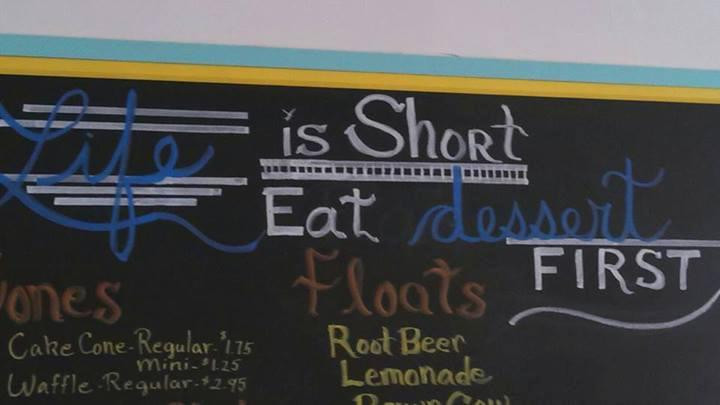 Life is Short
Eat dessert
FIRST
Cones
Cake Cone-Regular-$1.75
Mini-$1.25
Waffle-Regular-$2.95
Floats
Root Beer
Lemonade
Brown Cow